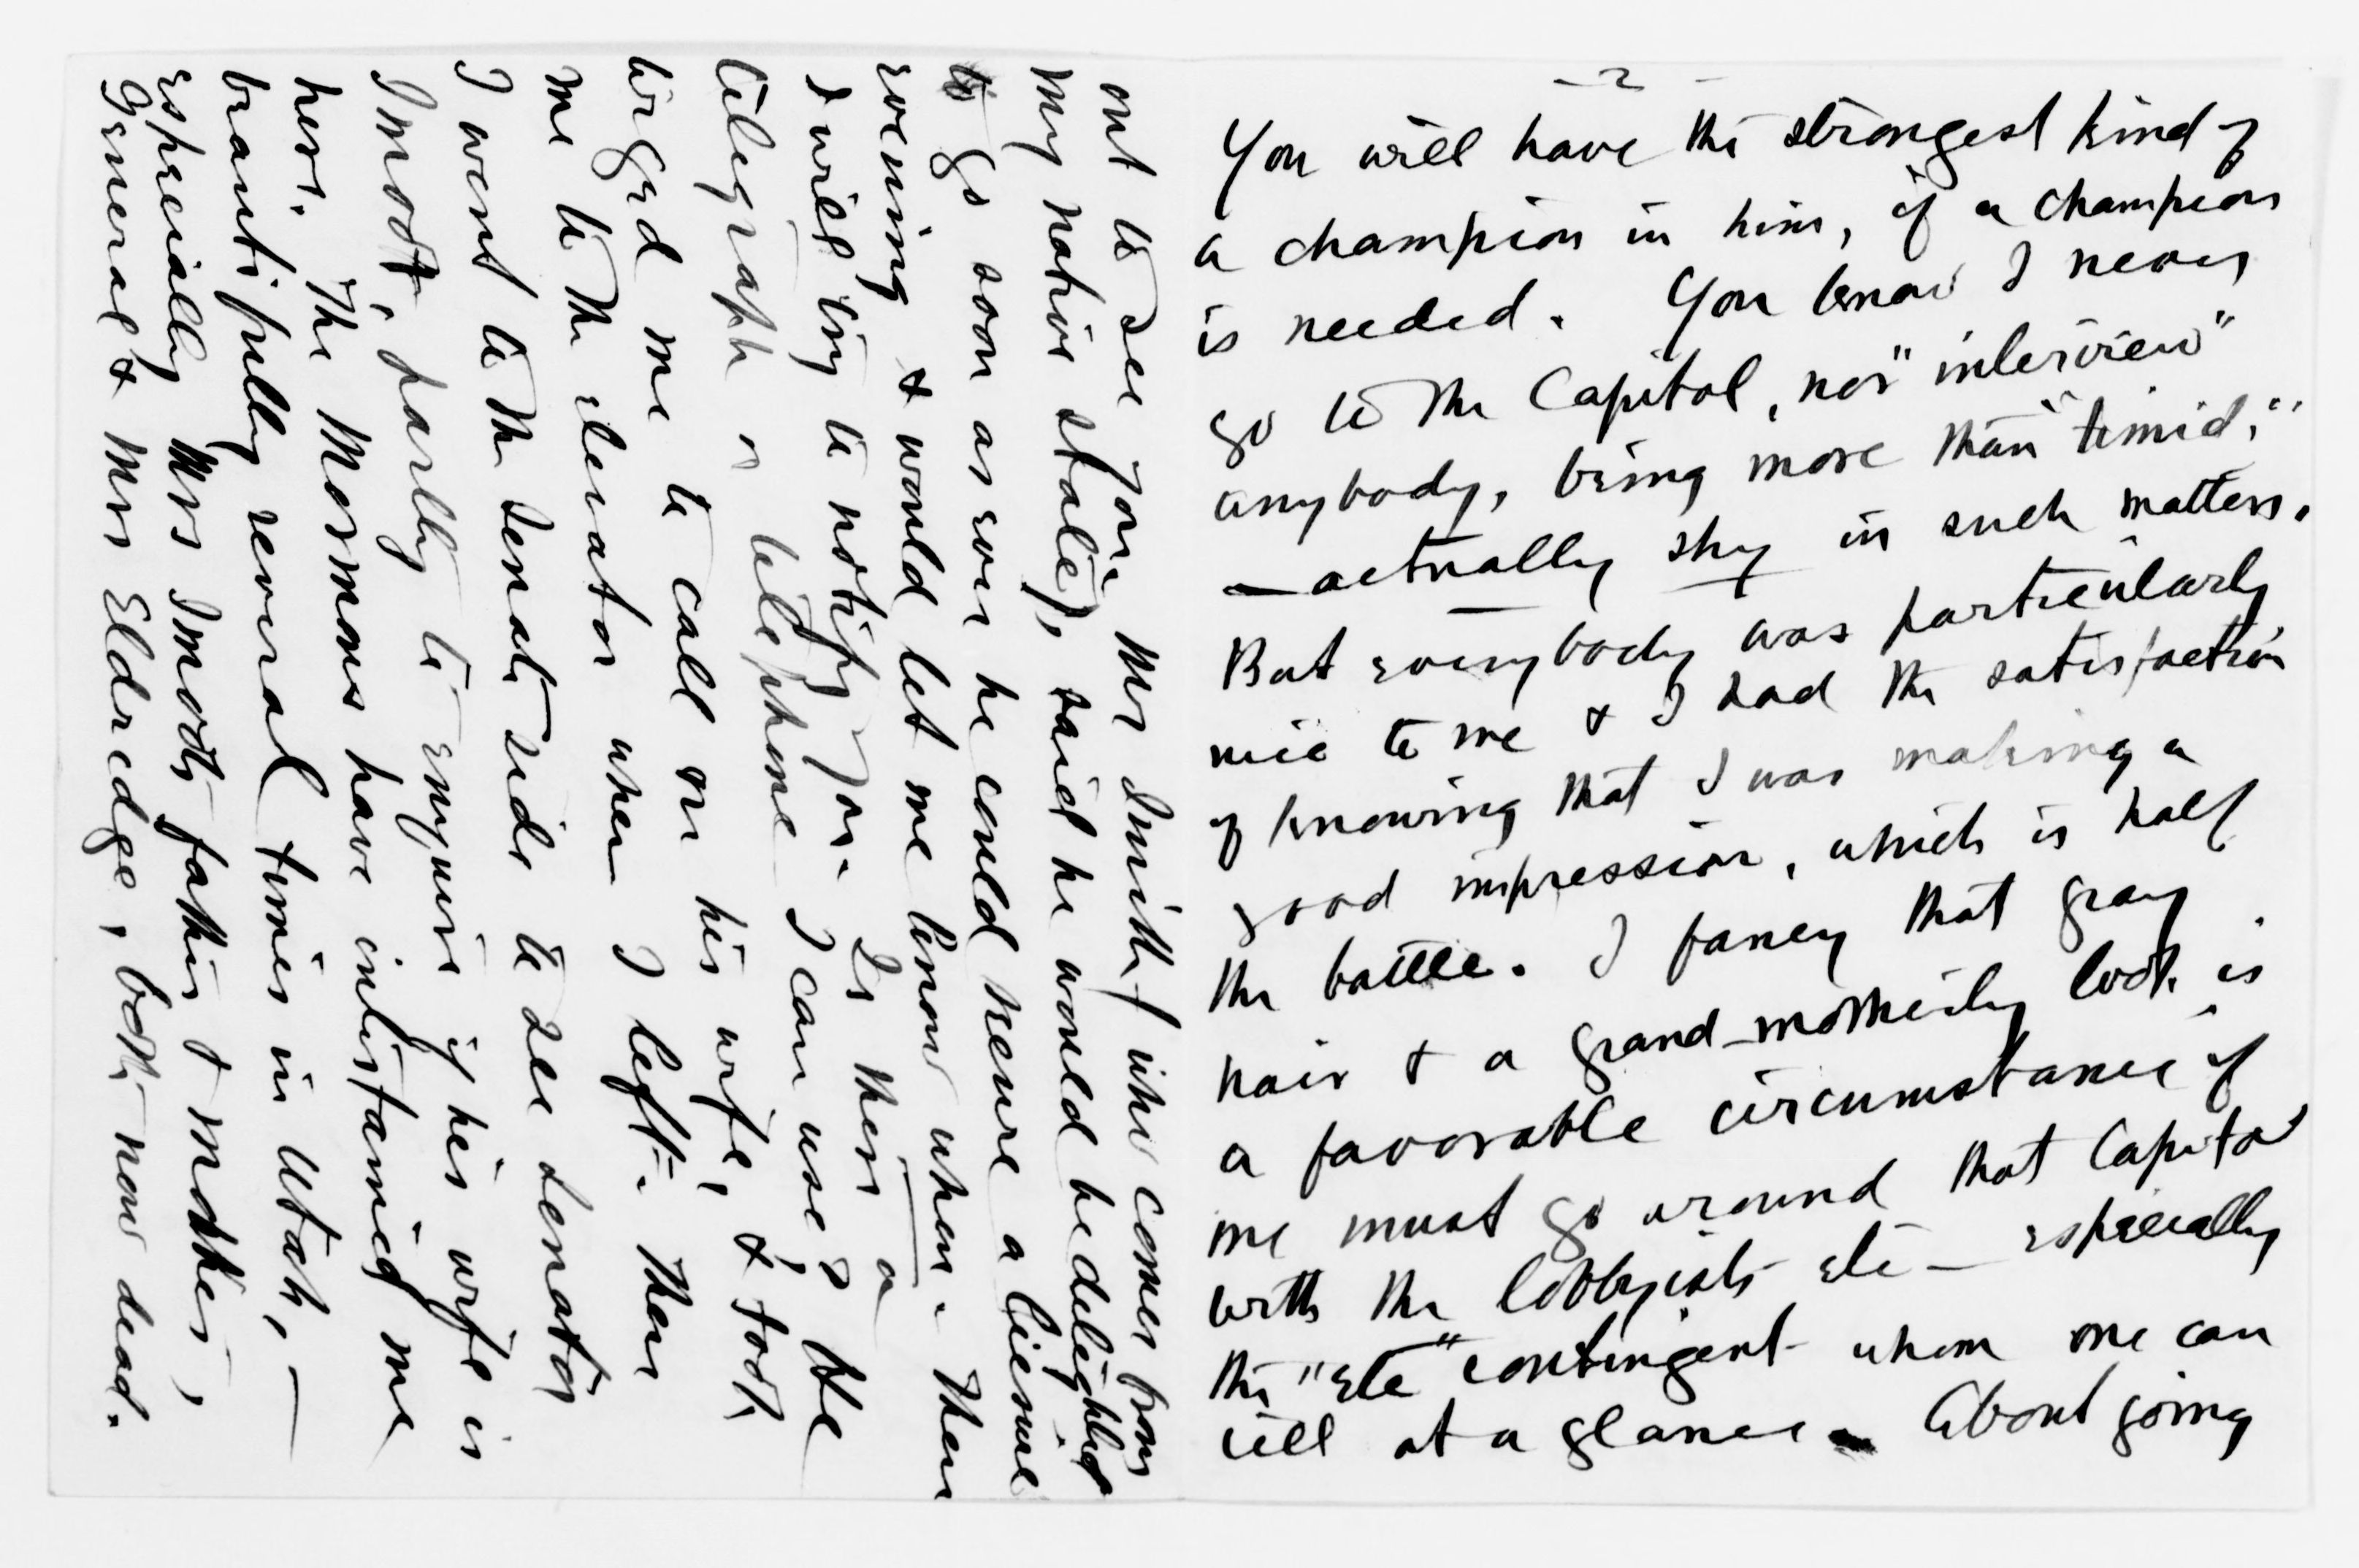 - 2 -
You will have the strongest kind of
a champion in him, if a champion
is needed. You know I never
go to the Capitol, nor "interview"
anybody, being more than "timid,"
- actually shy in such matters.
But everybody was particularly
nice to me & I had the satisfaction
of knowing that I was making a
good impression, which is half
the battle. I fancy that gray
hair & a grand-motherly look is
a favorable circumstance if
one must go around that Capitol
with the lobbyists etc - especially
the "etc" contingent whom one can
tell at a glance. About going
out to see you. Mr Smith (who comes from
my native state), said he would be delighted
to go soon as ever he could secure a license
evening & would let me know when. Then
I will try to notify you. Is there a
telegraph or telephone I can use? He
urged me to call on his wife, & took
me to the elevator when I left. Then
I went to the Senate side to see Senator
Smoot, partly to enquire if his wife is
here. The Mormons have entertained me
beautifully several times in Utah, -
especially Mrs Smoots father & mother,
General & Mrs Eldredge, both now dead.